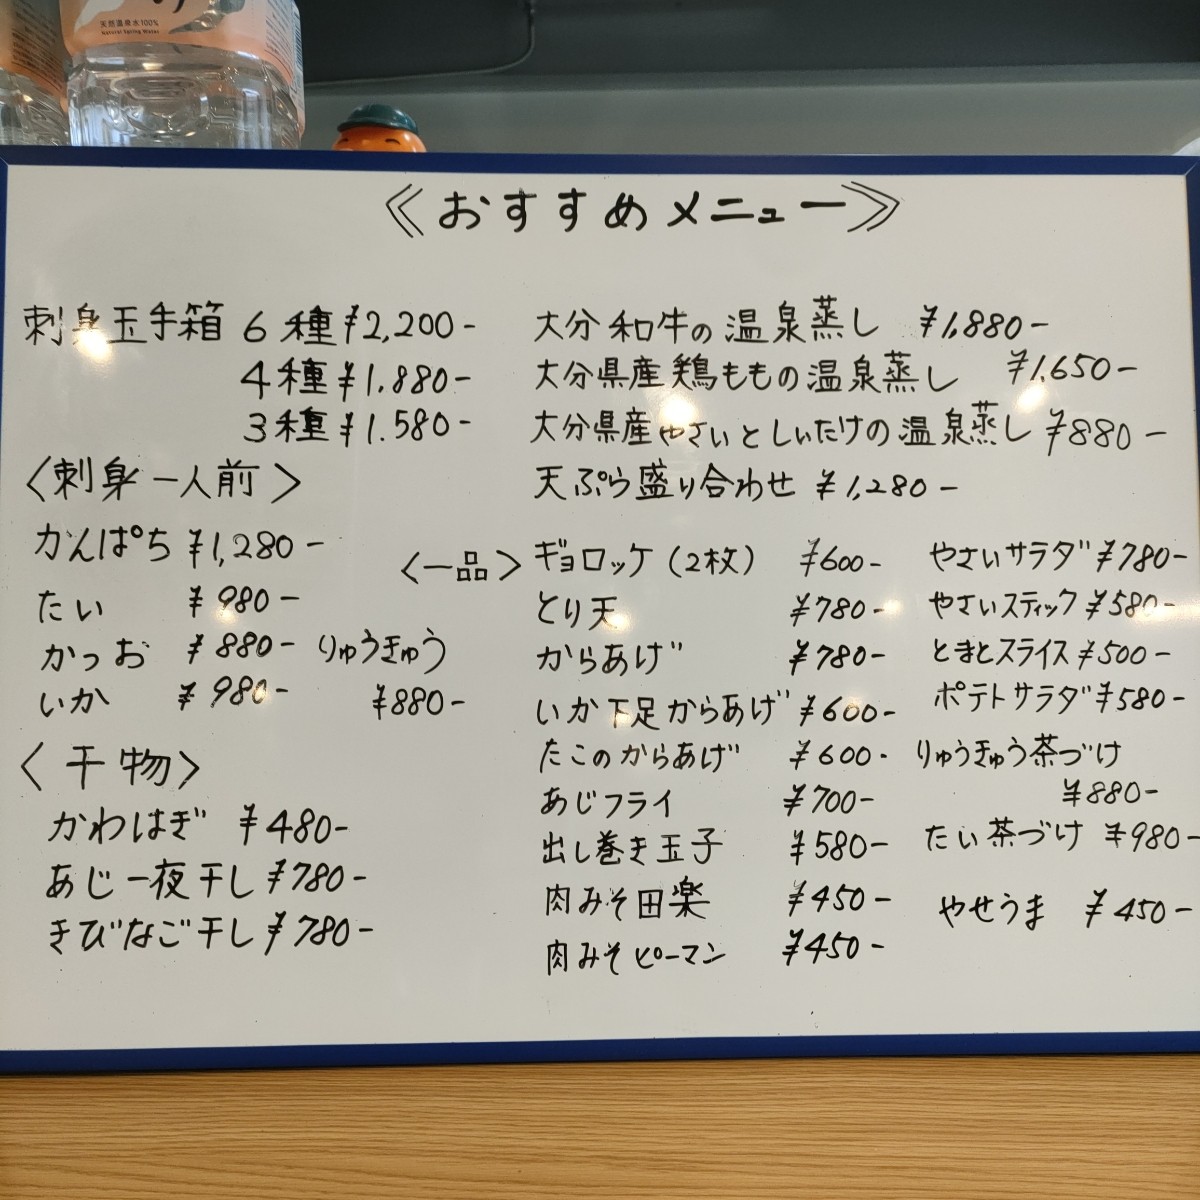 天然温泉水100%
Natural Spring Water
≪おすすめメニュー≫
刺身玉手箱 6種 ¥2,200-
4種 ¥1.880-
3種 ¥1.580-
〈刺身一人前〉
かんぱち ¥1,280-
たい ¥980-
かつお ¥880-
いか ¥980-
りゅうきゅう
¥880-
〈干物〉
かわはぎ ¥480-
あじ一夜干し ¥780-
きびなご干し ¥780-
大分和牛の温泉蒸し ¥1,880-
大分県産鶏ももの温泉蒸し ¥1,650-
大分県産やさいとしいたけの温泉蒸し ¥880-
天ぷら盛り合わせ ¥1,280-
〈一品〉
ギョロッケ(2枚) ¥600-
とり天 ¥780-
からあげ ¥780-
いか下足からあげ ¥600-
たこのからあげ ¥600-
あじフライ ¥700-
出し巻き玉子 ¥580-
肉みそ田楽 ¥450-
肉みそピーマン ¥450-
やさいサラダ ¥780-
やさいスティック ¥580-
とまとスライス ¥500-
ポテトサラダ ¥580-
りゅうきゅう茶づけ
¥880-
たい茶づけ ¥980-
やせうま ¥450-